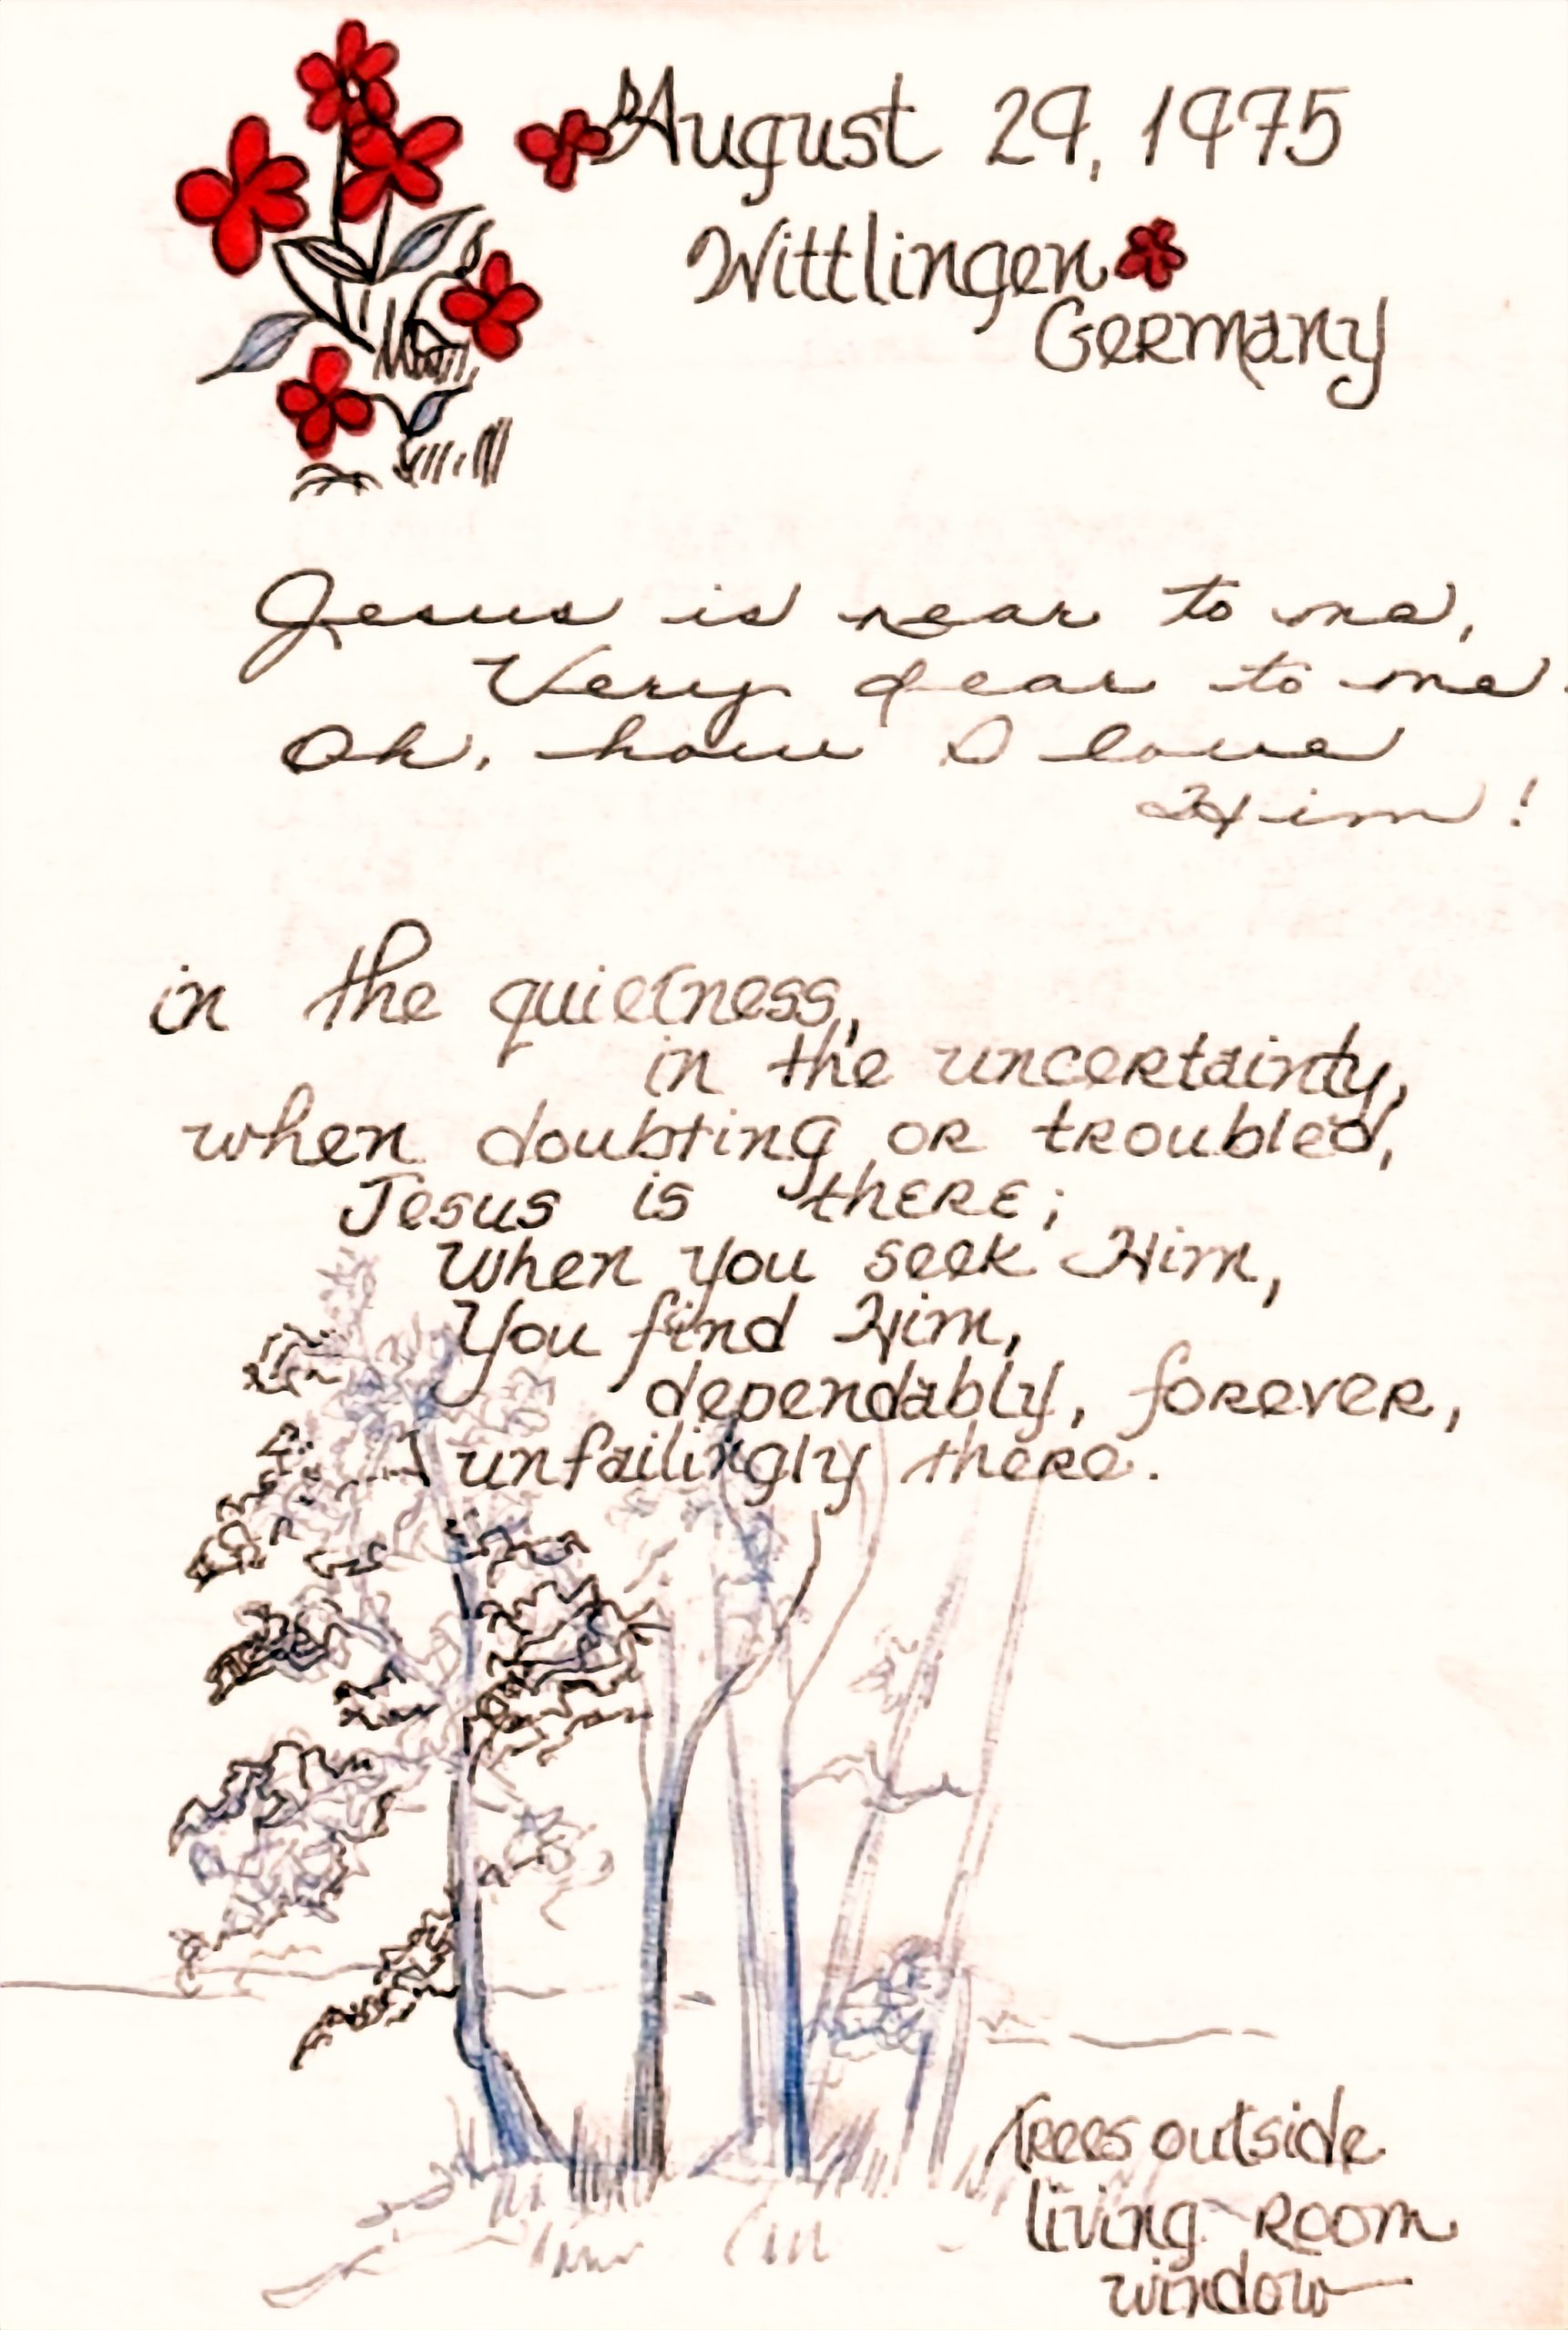 August 29, 1975
Wittlingen
Germany
Jesus is near to me,
Very dear to me.
Oh, how I love
Him!
in the quietness,
in the uncertainty,
when doubting or troubled,
Jesus is there;
When you seek Him,
You find Him,
dependably, forever,
unfailingly there.
Trees outside
living room
window